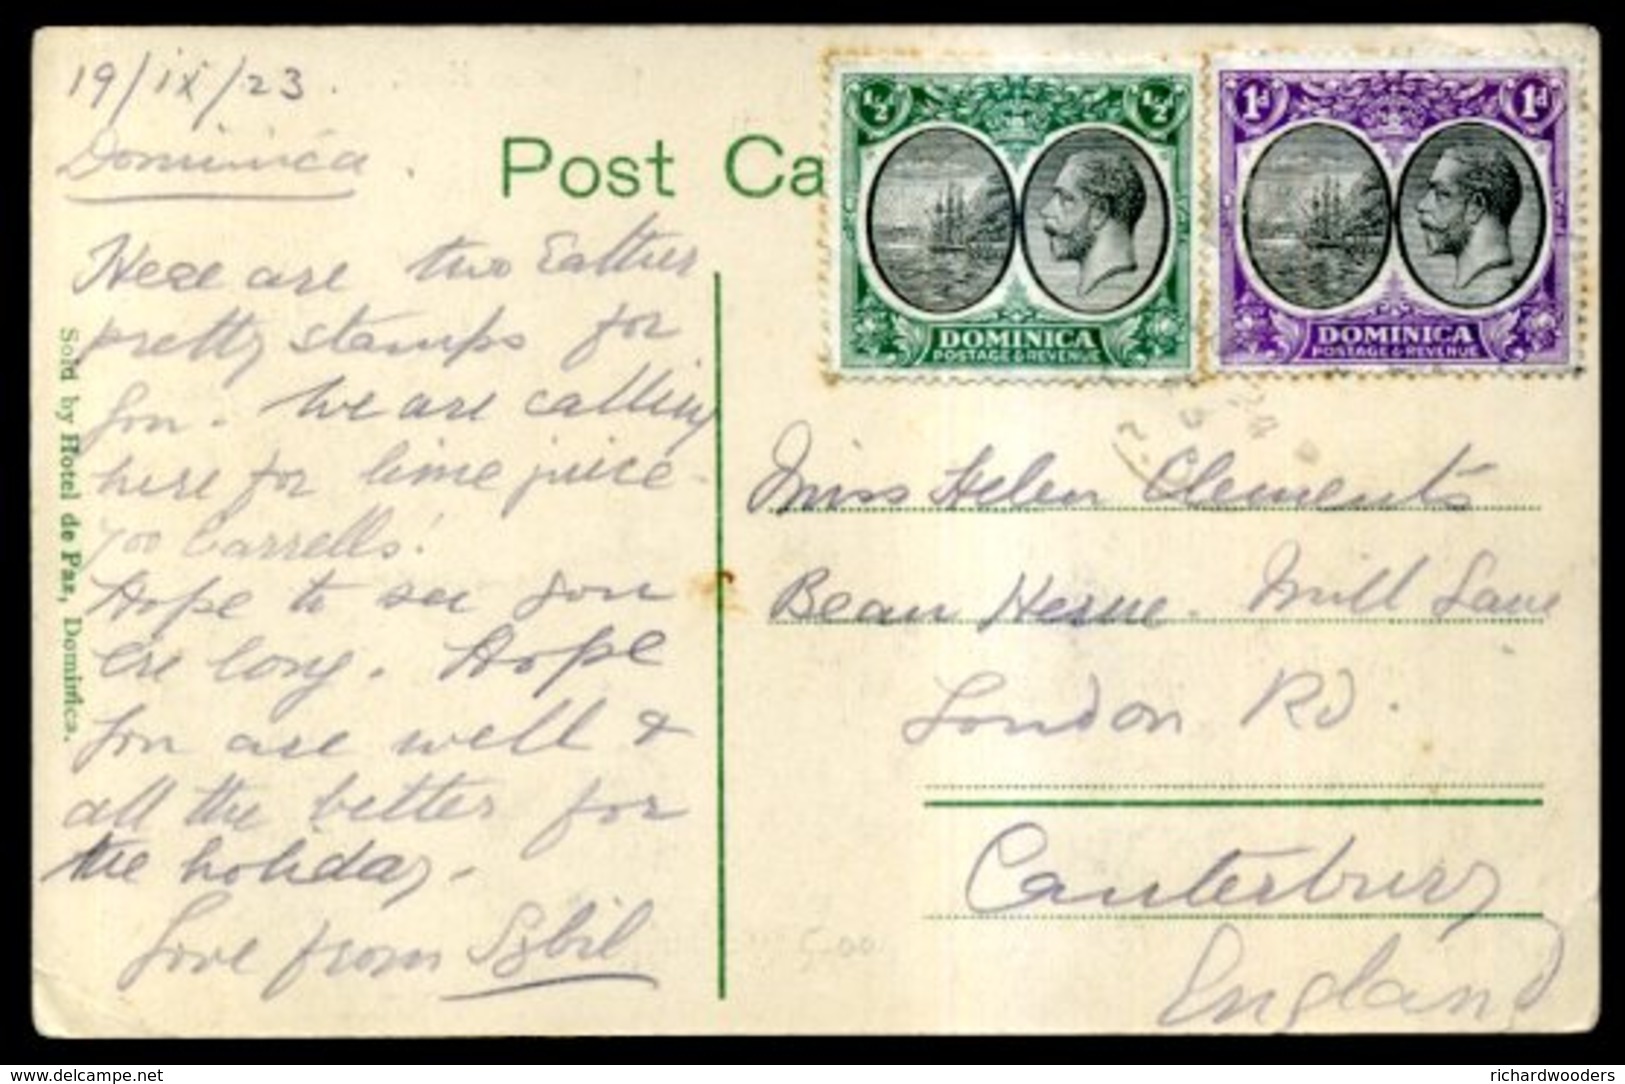 19/ix/23.
Dominica.
Here are two Eather
pretty stamps for
you. We are calling
here for lime juice -
700 barrells!
Hope to see you
ere long. Hope
you are well &
all the better for
the holiday -
Love from Sybil
Sold by Hotel de Paz, Dominica.
Post Ca
½d ½d
DOMINICA
POSTAGE & REVENUE
1d 1d
DOMINICA
POSTAGE & REVENUE
Miss Helen Clements
Bean Herne. Mill Lane
London Rd.
Canterbury
England
5-00
delcampe.net
richardwooders